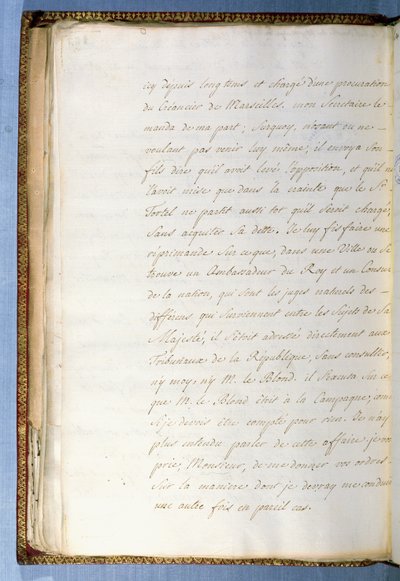 icy depuis longtems et chargé d'une procuration
du Créancier de Marseilles. mon Secretaire le
manda de ma part; Surquoy, n'osant ou ne
voulant pas venir luy même, il envoya Son
fils dire qu'il avoit levé l'opposition, et qu'il ne
l'avoit mise que dans la crainte que le Sr.
Tortel ne partît aussi tot qu'il Seroit chargé,
Sans acquiter Sa dette. Je luy fis faire une
réprimande Sur ce que, dans une Ville ou Se
trouve un Ambassadeur du Roy et un Consul
de la nation, qui Sont les juges naturels des
différens qui Surviennent entre les Sujets de Sa
Majesté, il S'étoit adressé directement aux
Tribunaux de la République, Sans consulter,
n'y moy, n'y M. le Blond. il S'excusa Sur ce
que M. le Blond étoit à la Campagne, come
Si je devois être compté pour rien. Je n'ay
plus entendu parler de cette affaire. je vous
prie, Monsieur, de me donner vos ordres
Sur la maniere dont je devray me conduire
une autre fois en pareil cas.